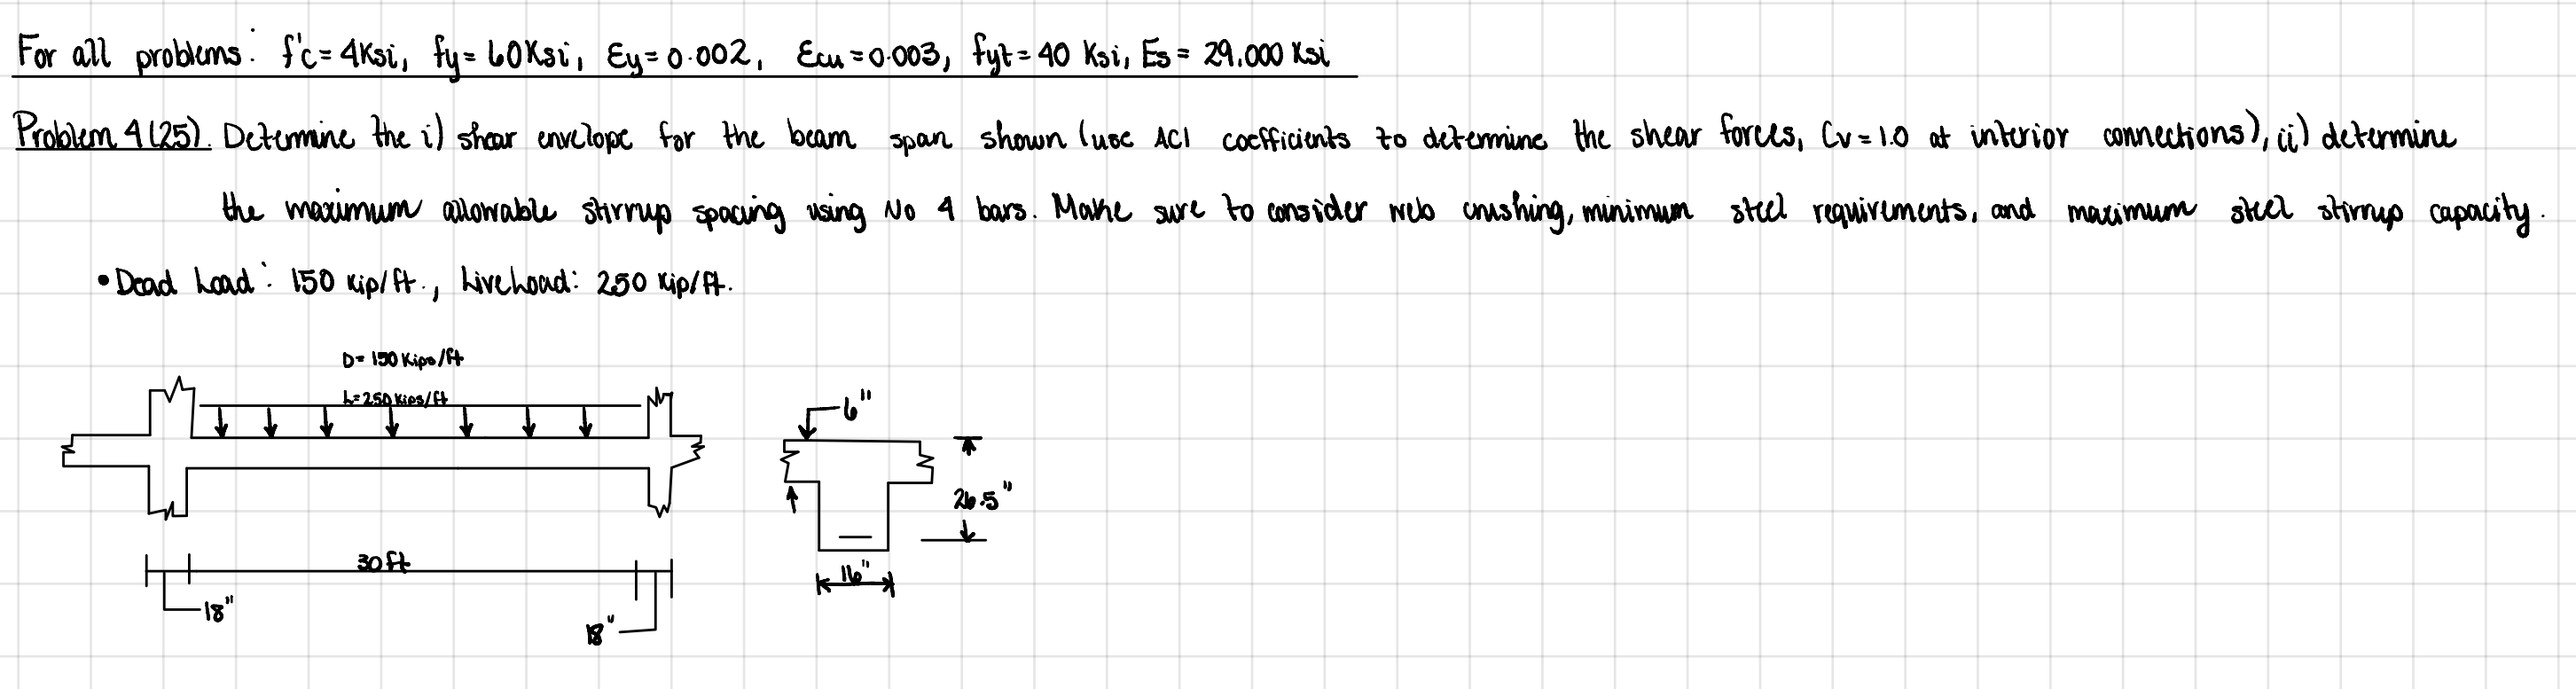 For all problems: f'c = 4Ksi, fy = 60Ksi, Ey = 0.002, Ecu = 0.003, fyt = 40 Ksi, Es = 29,000 Ksi
Problem 4 (25). Determine the i) shear envelope for the beam span shown (use ACI coefficients to determine the shear forces, Cv = 1.0 at interior connections), ii) determine
the maximum allowable stirrup spacing using No 4 bars. Make sure to consider web crushing, minimum steel requirements, and maximum steel stirrup capacity.
• Dead Load: 150 Kip/ft., Live Load: 250 Kip/ft.
D = 150 Kips/ft
L = 250 Kips/ft
6"
26.5"
30ft
16"
18"
18"